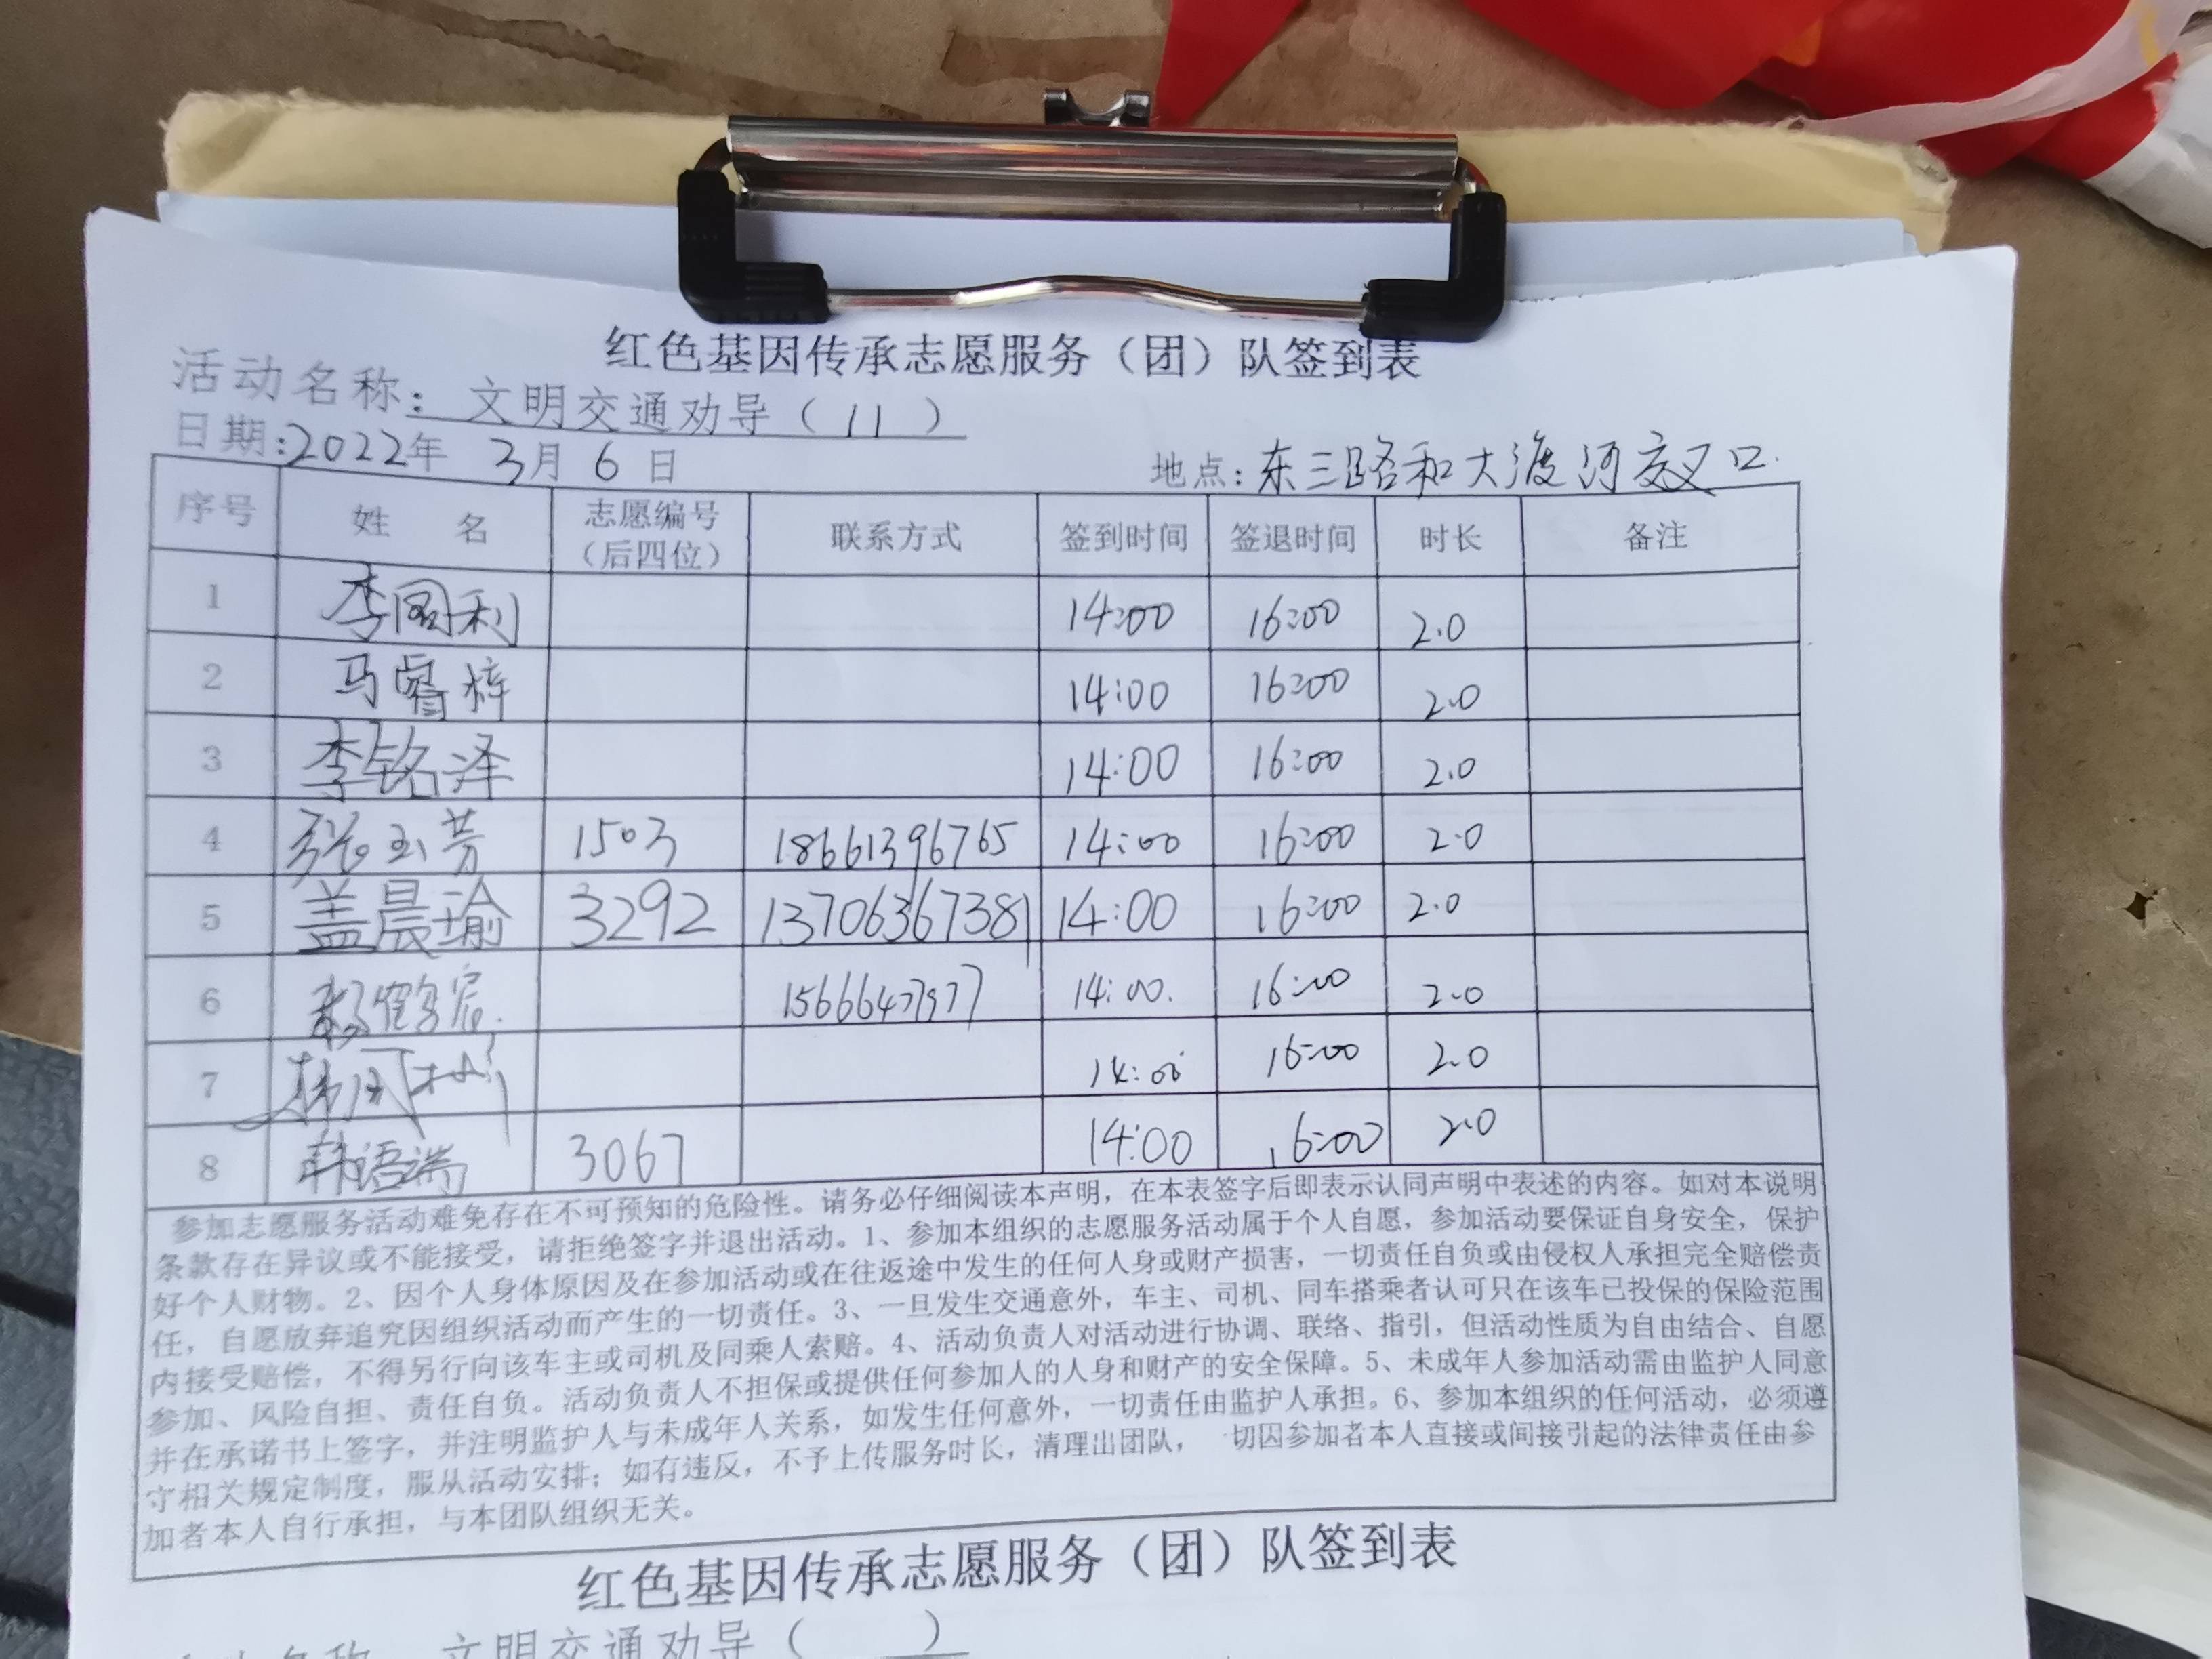 红色基因传承志愿服务（团）队签到表
活动名称：文明交通劝导（11）
日期:2022年 3月 6日 地点：东三路和大渡河交叉口.
序号 姓 名 志愿编号（后四位） 联系方式 签到时间 签退时间 时长 备注
1 李国利 14:00 16:00 2.0
2 马睿梓 14:00 16:00 2.0
3 李铭泽 14:00 16:00 2.0
4 张玉芳 1503 18661396765 14:00 16:00 2.0
5 盖晨瑜 3292 13706367381 14:00 16:00 2.0
6 杨鹤宸 15666477977 14:00. 16:00 2.0
7 韩 14:00 16:00 2.0
8 韩语端 3067 14:00 16:00 2.0
参加志愿服务活动难免存在不可预知的危险性。请务必仔细阅读本声明，在本表签字后即表示认同声明中表述的内容。如对本说明
条款存在异议或不能接受，请拒绝签字并退出活动。1、参加本组织的志愿服务活动属于个人自愿，参加活动要保证自身安全，保护
好个人财物。2、因个人身体原因及在参加活动或在往返途中发生的任何人身或财产损害，一切责任自负或由侵权人承担完全赔偿责
任，自愿放弃追究因组织活动而产生的一切责任。3、一旦发生交通意外，车主、司机、同车搭乘者认可只在该车已投保的保险范围
内接受赔偿，不得另行向该车主或司机及同乘人索赔。4、活动负责人对活动进行协调、联络、指引，但活动性质为自由结合、自愿
参加、风险自担、责任自负。活动负责人不担保或提供任何参加人的人身和财产的安全保障。5、未成年人参加活动需由监护人同意
并在承诺书上签字，并注明监护人与未成年人关系，如发生任何意外，一切责任由监护人承担。6、参加本组织的任何活动，必须遵
守相关规定制度，服从活动安排；如有违反，不予上传服务时长，清理出团队，一切因参加者本人直接或间接引起的法律责任由参
加者本人自行承担，与本团队组织无关。
红色基因传承志愿服务（团）队签到表
活动名称：文明交通劝导（ ）